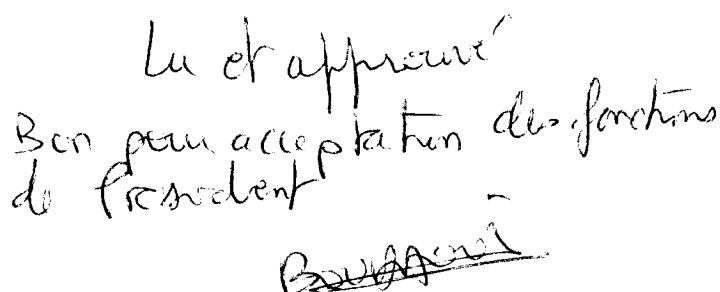 Lu et approuvé
Bon pour acceptation des fonctions
de Président